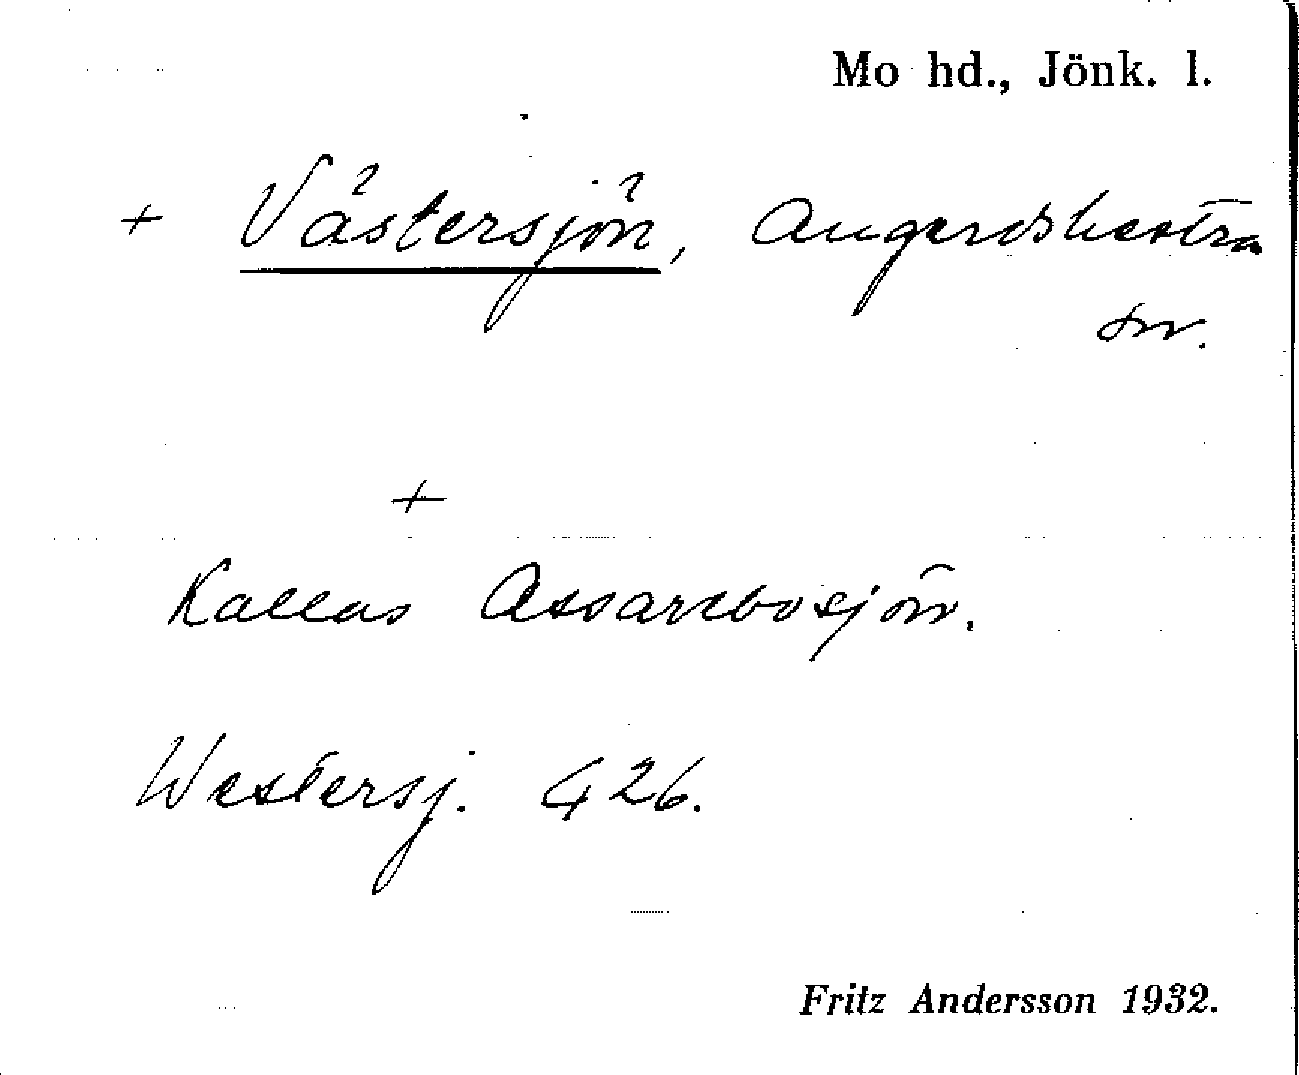 Mo hd., Jönk. l.
+ Västersjön, Angerdshestra
sn.
+
Kallas Assarebosjön.
Westersj. 426.
Fritz Andersson 1932.